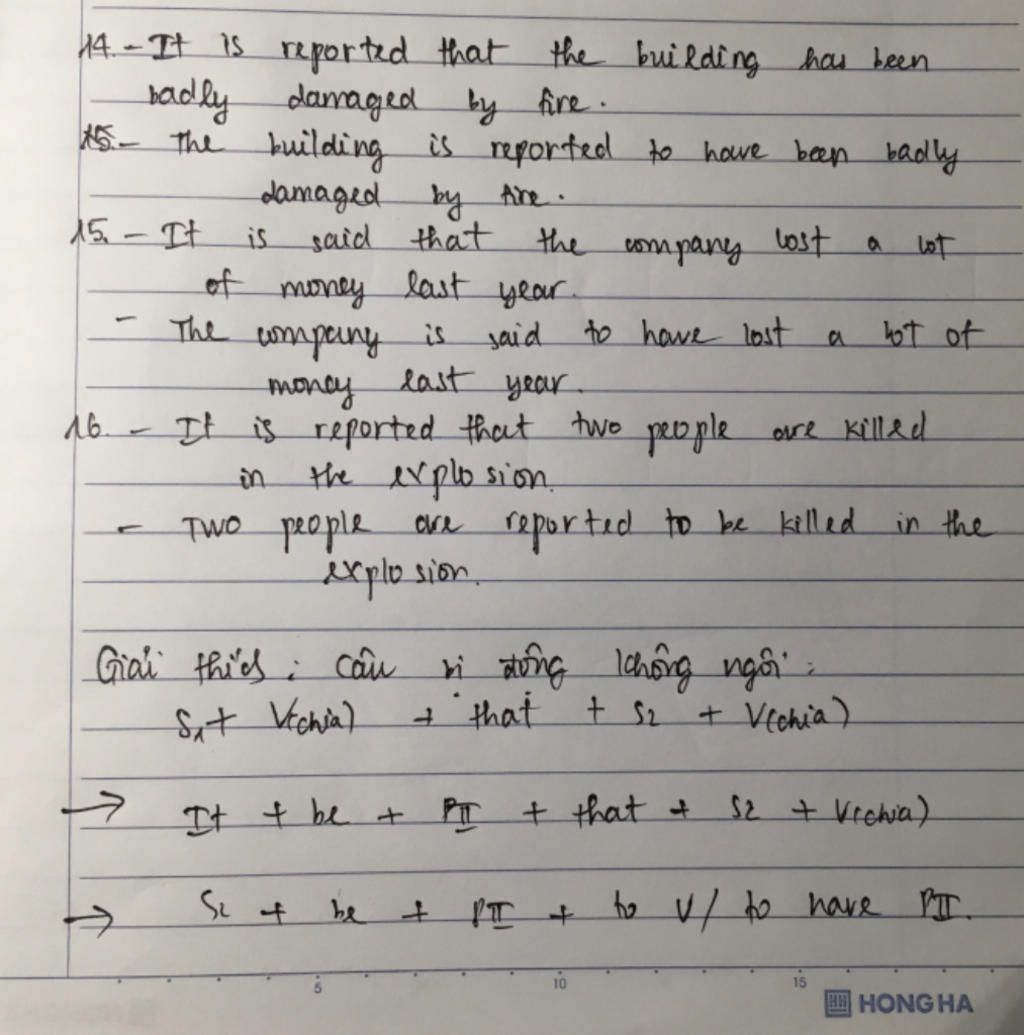 14. - It is reported that the building has been
badly damaged by fire.
15. - The building is reported to have been badly
damaged by fire.
15. - It is said that the company lost a lot
of money last year.
- The company is said to have lost a lot of
money last year.
16. - It is reported that two people are killed
in the explosion.
- Two people are reported to be killed in the
explosion.
Giải thích : Câu bị động không ngôi :
S1 + V(chia) + that + S2 + V(chia)
→ It + be + PII + that + S2 + V(chia)
→ S2 + be + PII + to V / to have PII.
5 10 15
HONG HA